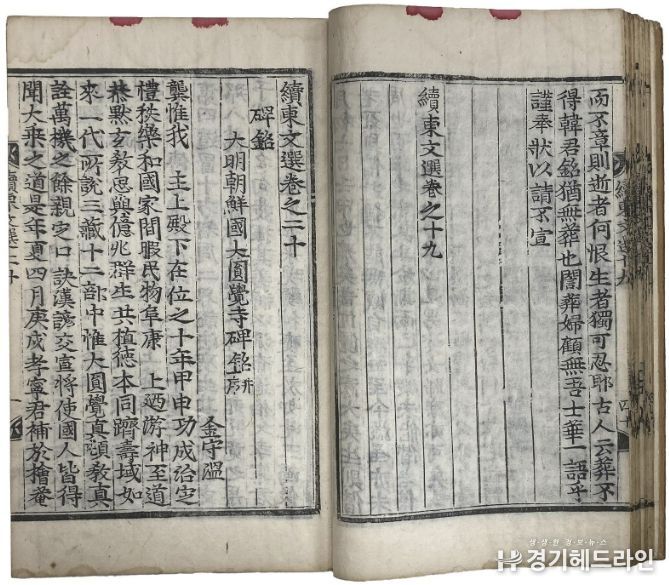 而不章則逝者何恨生者獨可忍耶古人云葬不
得韓君銘猶無葬也闇葬婦顧無吾士華一語乎
謹奉狀以請不宣
續東文選卷之十九
續東文選十九
四十
續東文選卷之二十
碑銘
大明朝鮮國大圓覺寺碑銘 并序
金守溫
龔惟我 主上殿下在位之十年甲申功成治定
禮秩樂和國家閒暇民物阜康 上迺游神至道
恭默玄教思與億兆群生共植德本同躋壽域如
來一代所說三藏十二部中惟大圓覺眞頓教眞
詮萬機之餘親定口訣漢諺交宣將使國人皆得
聞大乘之道是年夏四月庚戌孝寧君補於檜菴
續東文選二十
一
생생한 정보뉴스
경기헤드라인